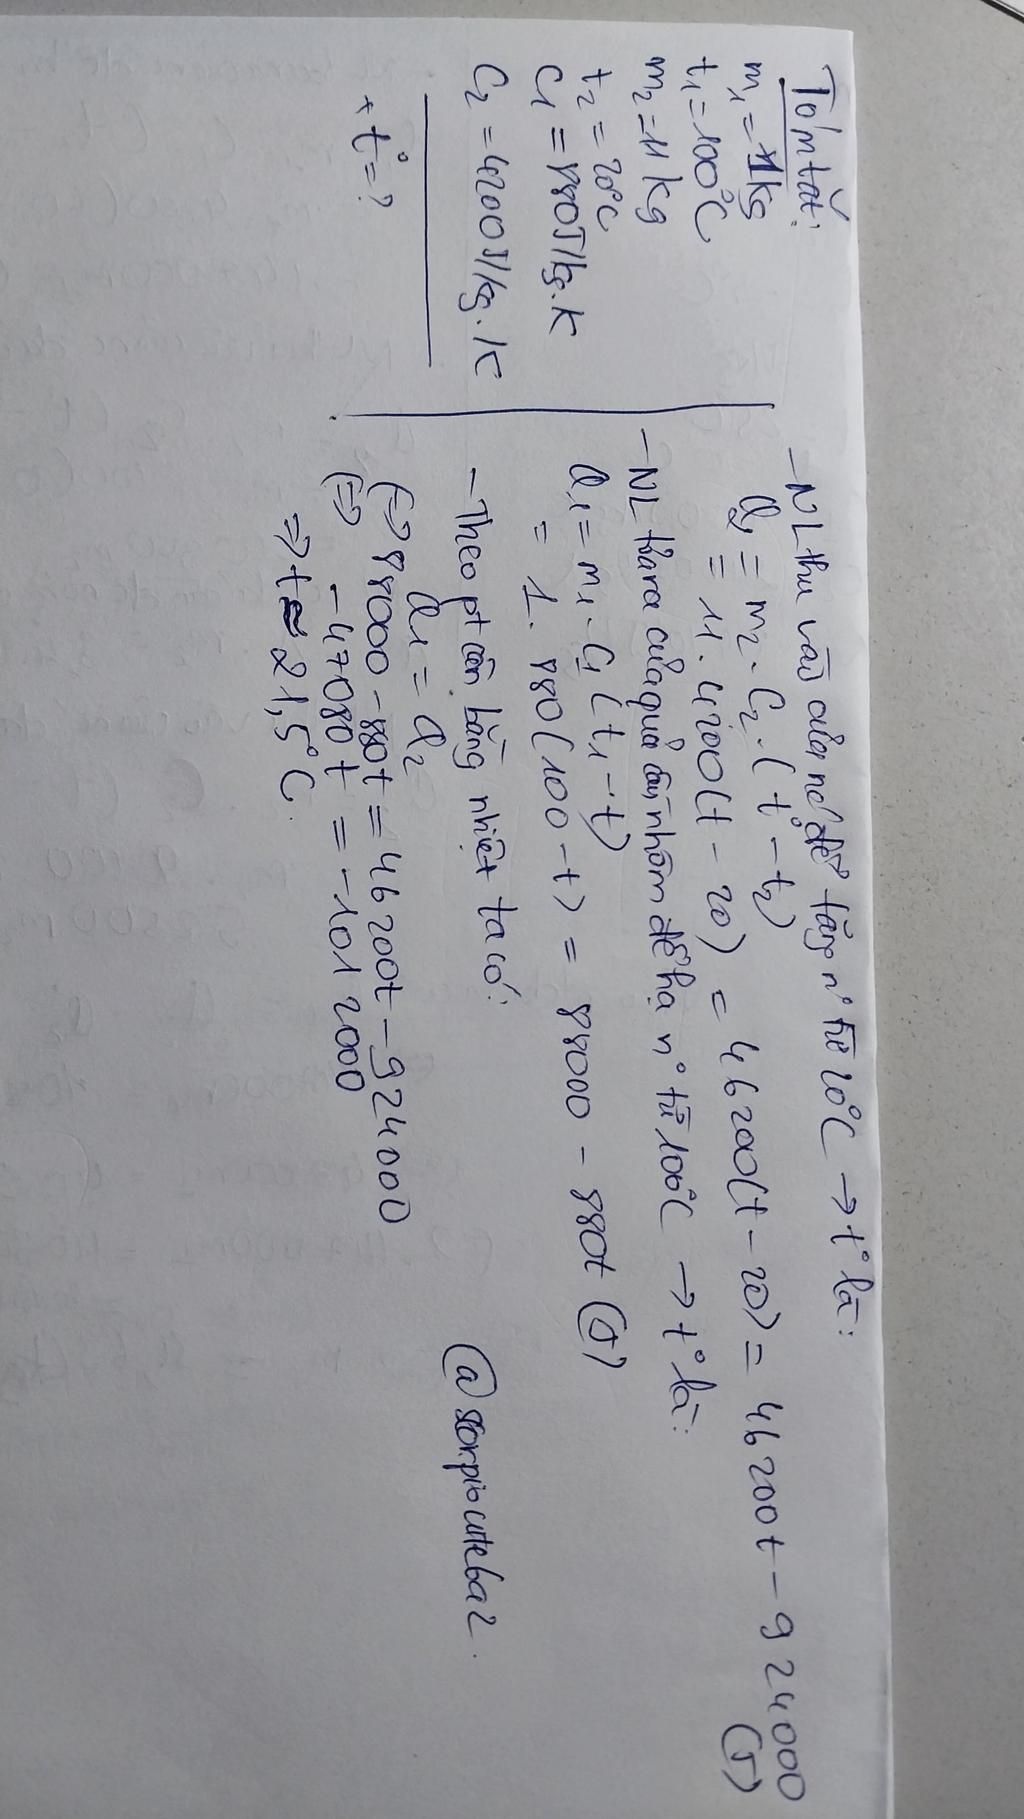 Tóm tắt:
m₁ = 1kg
t₁ = 100°C
m₂ = 11 kg
t₂ = 20°C
C₁ = 880J/kg.K
C₂ = 4200J/kg.K
* t° = ?
- NL thu vào của nc' để tăng n° từ 20°C → t° là:
Q₂ = m₂ . C₂ . (t° - t₂)
= 11 . 4200(t - 20) = 46200(t - 20) = 46200t - 924000 (J)
- NL tỏa ra của quả cầu nhôm để hạ n° từ 100°C → t° là:
Q₁ = m₁ . C₁ (t₁ - t)
= 1 . 880(100 - t) = 88000 - 880t (J)
- Theo pt cân bằng nhiệt ta có:
Q₁ = Q₂
(=> 88000 - 880t = 46200t - 924000
(=> -47080t = -1012000
=> t ≈ 21,5°C.
@scorpiocuteba2.